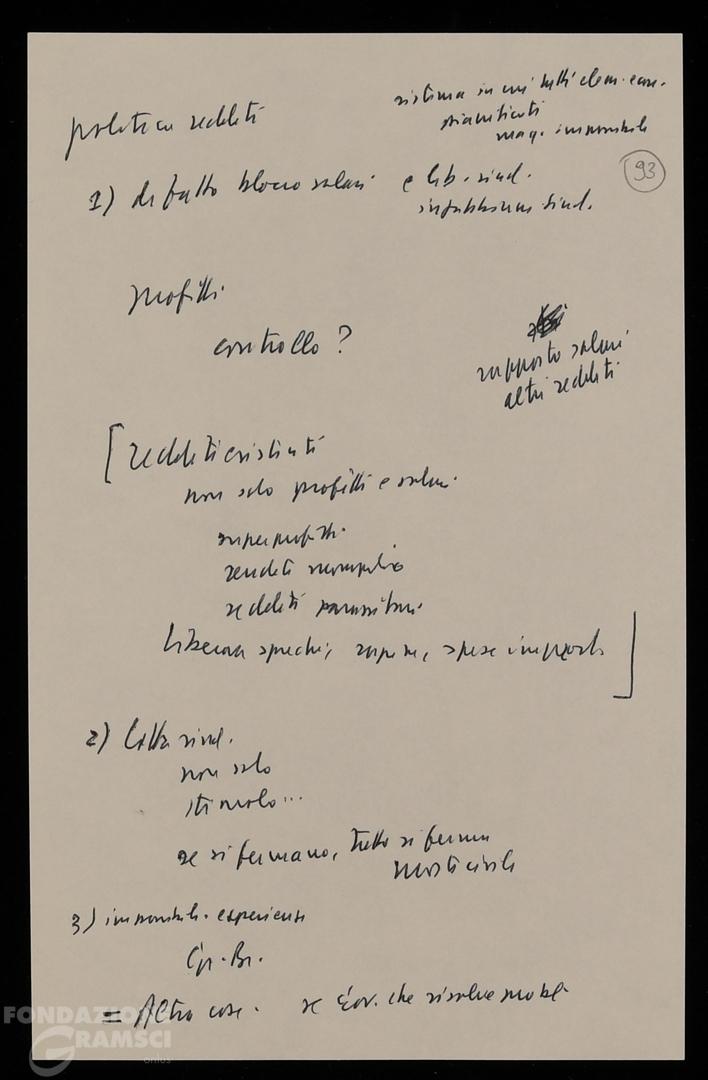 politica redditi
sistema in cui tutti elem. econ.
pianificati
ma q. impossibile
93
1) di fatto blocco salari e lib. sind.
sind.
profitti
controllo?
rapporto salari
altri redditi
[redditi esistenti
non solo profitti e salari
superprofitti
rendite monopolio
redditi parassitari
sprechi, rapine, spese improd.]
2) lotta sind.
non solo
stimolo...
se si fermano, tutto si ferma
3) impossibile. esperienze
Gr. Br.
= Altra cosa. se gov. che risolve probl.
FONDAZIONE
GRAMSCI
onlus